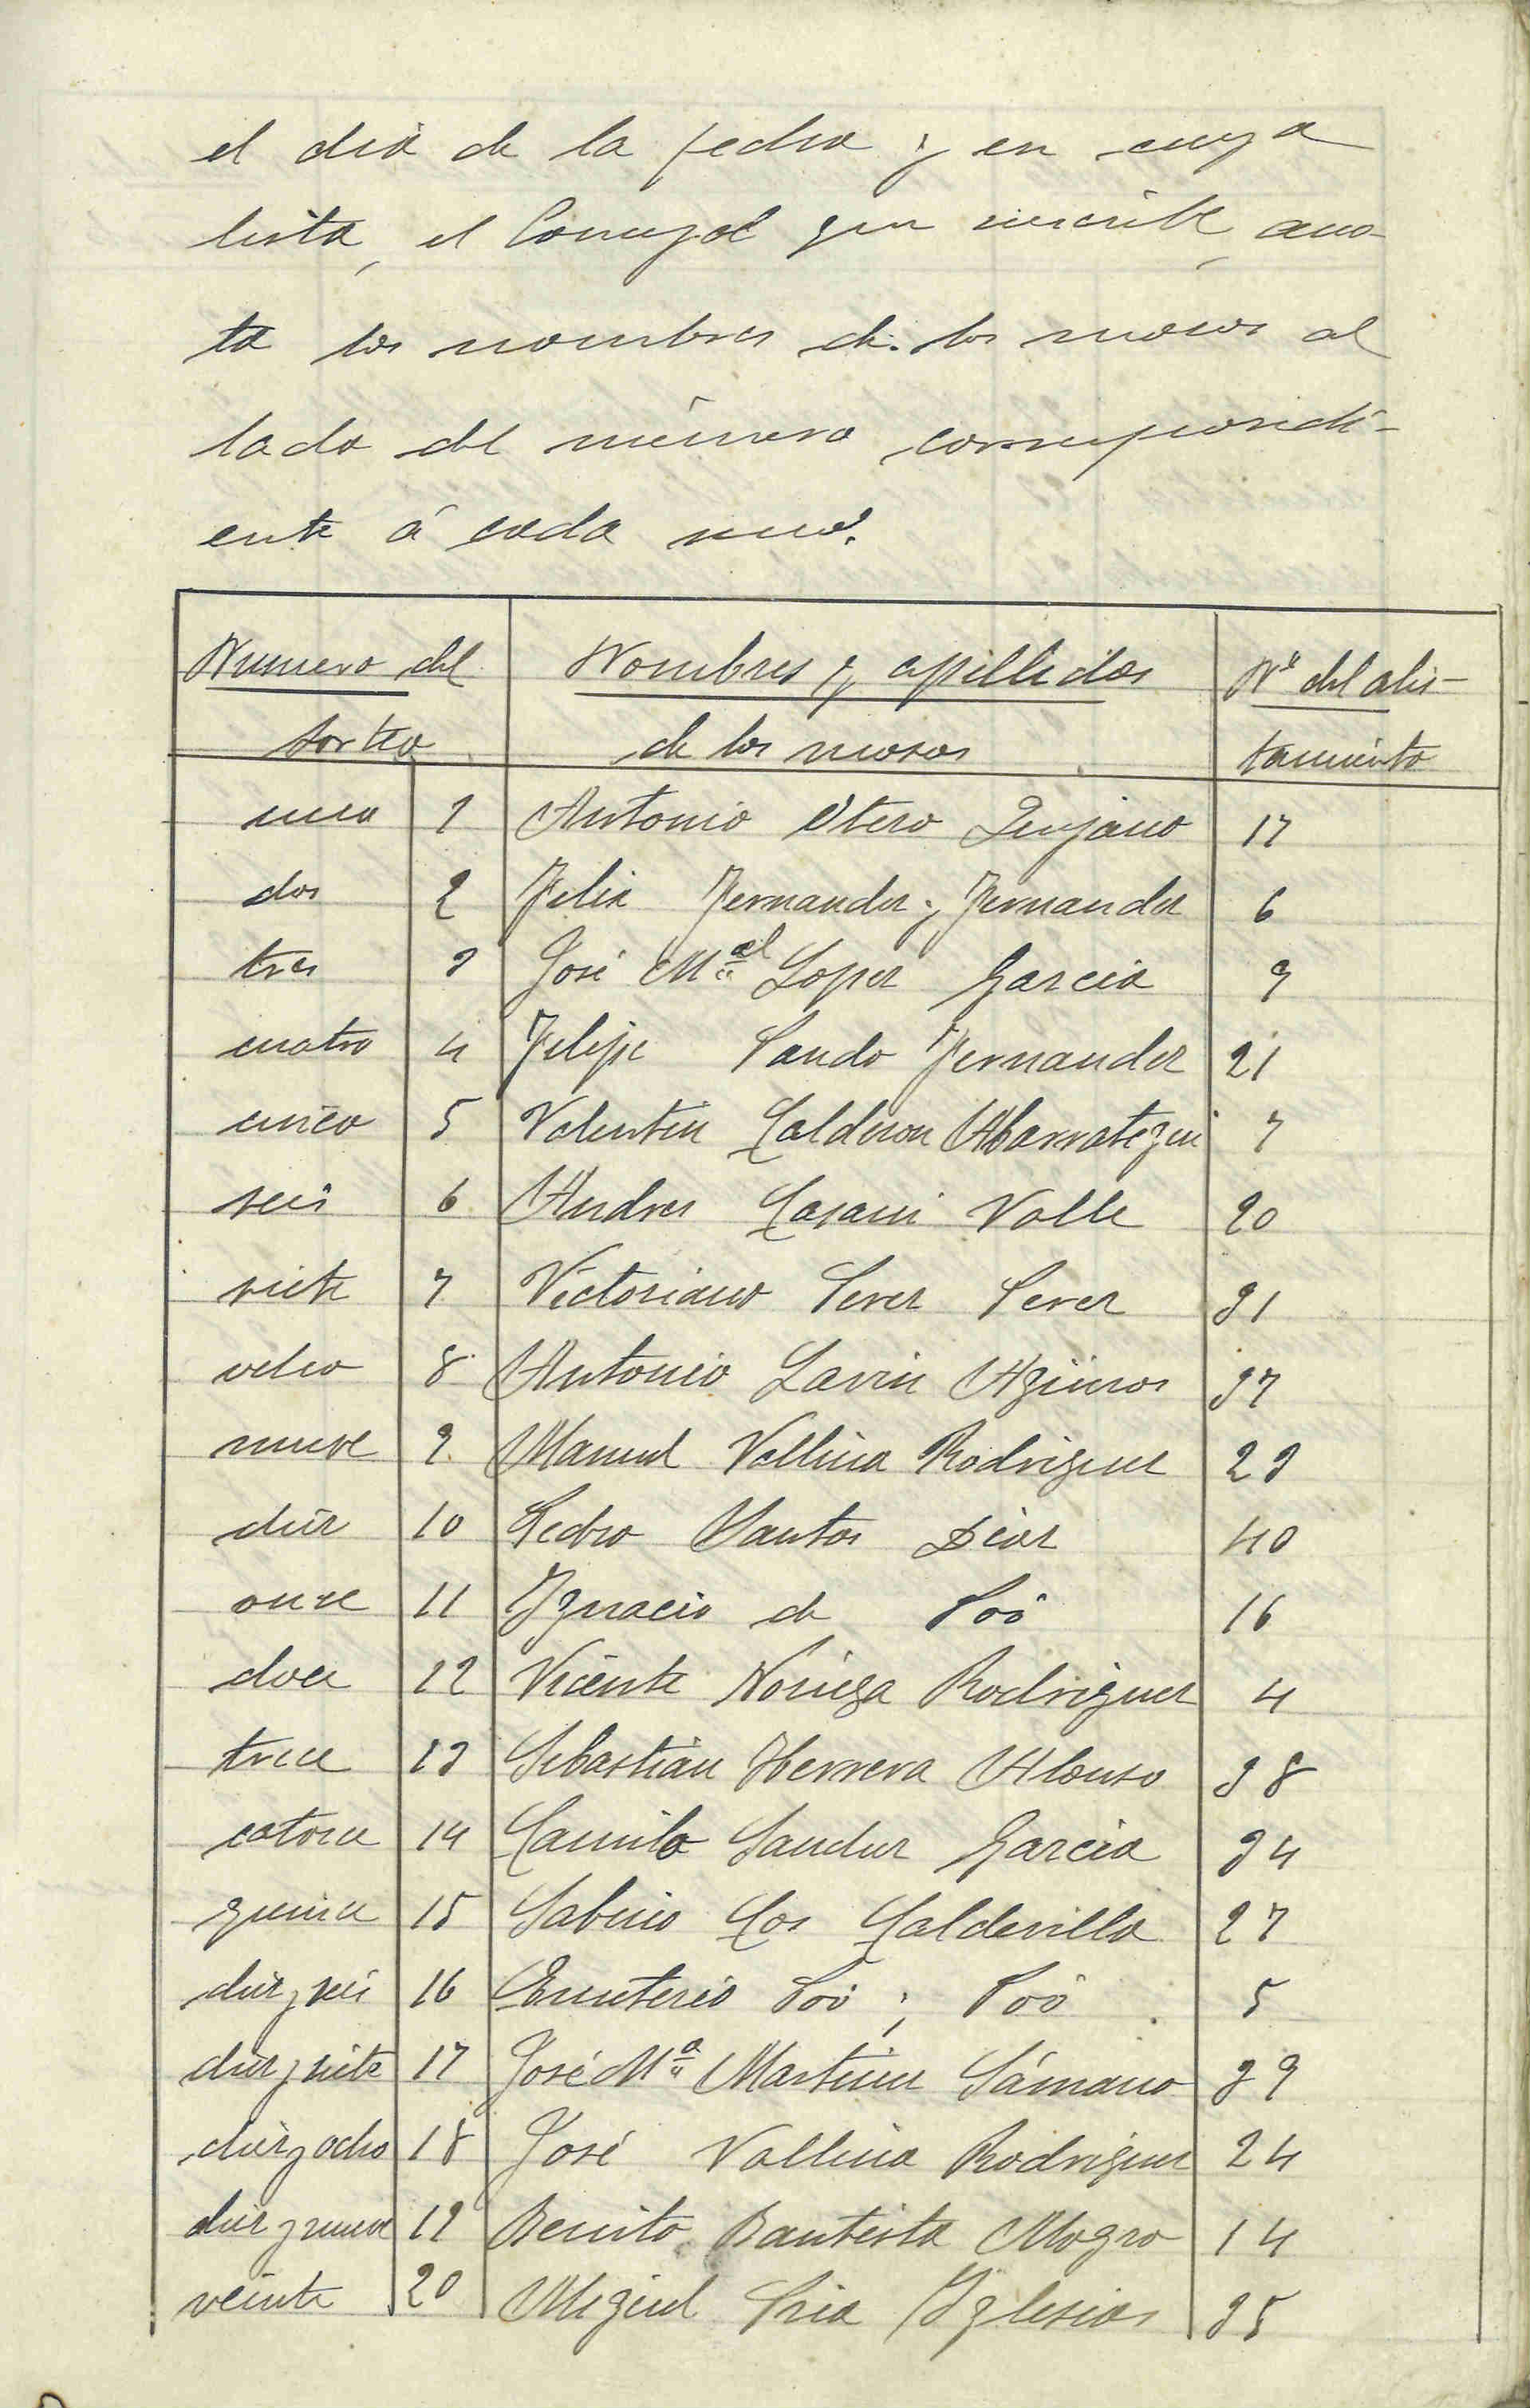 el dia de la fecha y en cuya
lista, el Concejal que suscribe, ano-
ta los nombres de los mosos al
lado del número correspondi-
ente á cada uno.
Numero del Nombres y apellidos Nº del alis-
sorteo de los mosos tamiento
uno 1 Antonio Otero Quijano 17
dos 2 Felix Fernandez y Fernandez 6
tres 3 José Mª Lopez Garcia 9
cuatro 4 Felipe Pando Fernandez 21
cinco 5 Valentin Calderon Abarrategui 7
seis 6 Andres Casani Valle 20
siete 7 Victoriano Perez Perez 31
ocho 8 Antonio Lavin Agüeros 37
nueve 9 Manuel Vallina Rodriguez 23
diez 10 Pedro Santos Diaz 40
once 11 Ignacio de Poó 16
doce 12 Vicente Noriega Rodriguez 4
trece 13 Sebastián Herrera Alonso 38
catorce 14 Camilo Sanchez Garcia 34
quince 15 Sabino Cos Caldevilla 27
diez y seis 16 Emeterio Poó y Poó 5
diez y siete 17 José Mª Martinez Sámano 39
diez y ocho 18 José Vallina Rodriguez 24
diez y nueve 19 Benito Bautista Mogro 14
veinte 20 Miguel Pria Iglesias 35